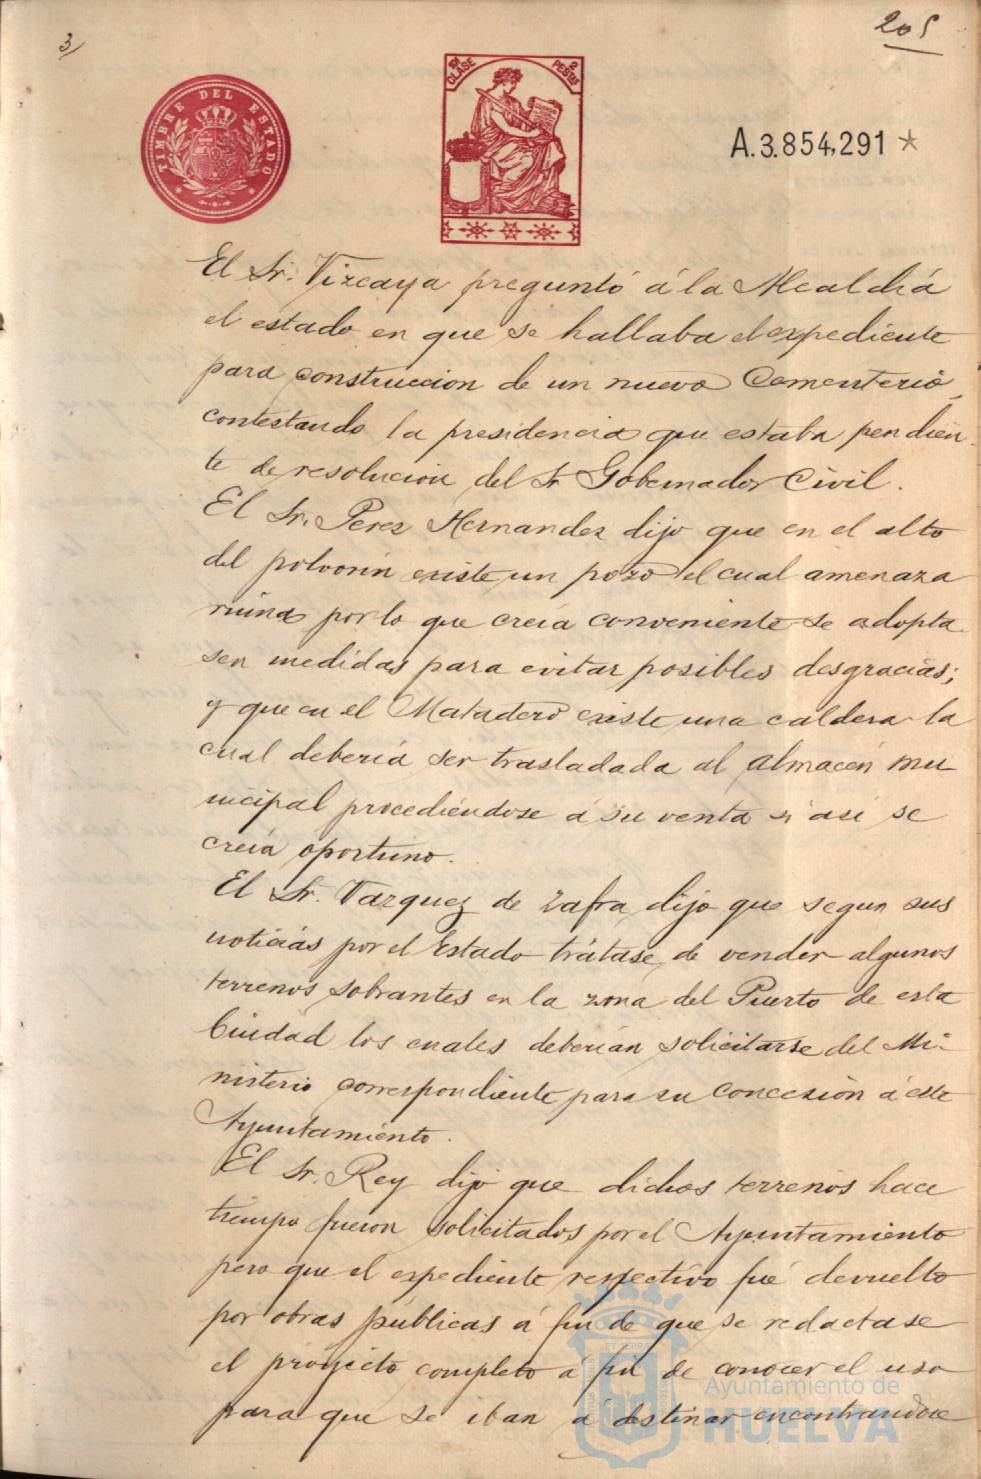 3/
205
TIMBRE DEL ESTADO
11ª CLASE
2 PESTAS
A.3.854,291 *
El Sr. Vizcaya preguntó á la Alcaldiá
el estado en que se hallaba el expediente
para construccion de un nuevo Cementerio,
contestando la presidencia que estaba pendien-
te de resolución del Sr Gobernador Civil.
El Sr. Perez Hernandez dijo que en el alto
del polvorin existe un pozo el cual amenaza
ruina por lo que creia conveniente se adopta-
sen medidas para evitar posibles desgracias;
y que en el Matadero existe una caldera la
cual deberia ser trasladada al almacén mu
nicipal procediéndose á su venta si asi se
creia oportuno.
El Sr. Vazquez de Zafra dijo que segun sus
noticias por el Estado trátase de vender algunos
terrenos sobrantes en la zona del Puerto de esta
Ciudad los cuales deberian solicitarse del Mi-
nisterio correspondiente para su concesión á este
Ayuntamiento.
El Sr. Rey dijo que dichos terrenos hace
tiempo fueron solicitados por el Ayuntamiento
pero que el expediente respectivo fué devuelto
por obras públicas á fin de que se redactase
el proyecto completo á fin de conocer el uso
para que se iban a destinar encontrandose
Ayuntamiento de
HUELVA